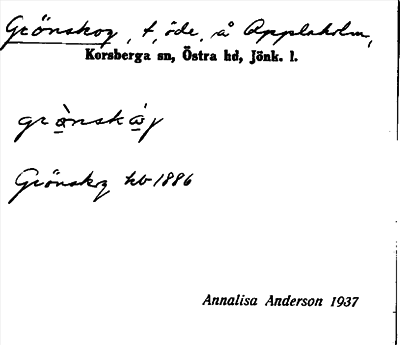 Grönskog, t, öde, å Applaholm,
Korsberga sn, Östra hd, Jönk. l.
grö̀nskó̱g
Grönskog hb 1886
Annalisa Anderson 1937